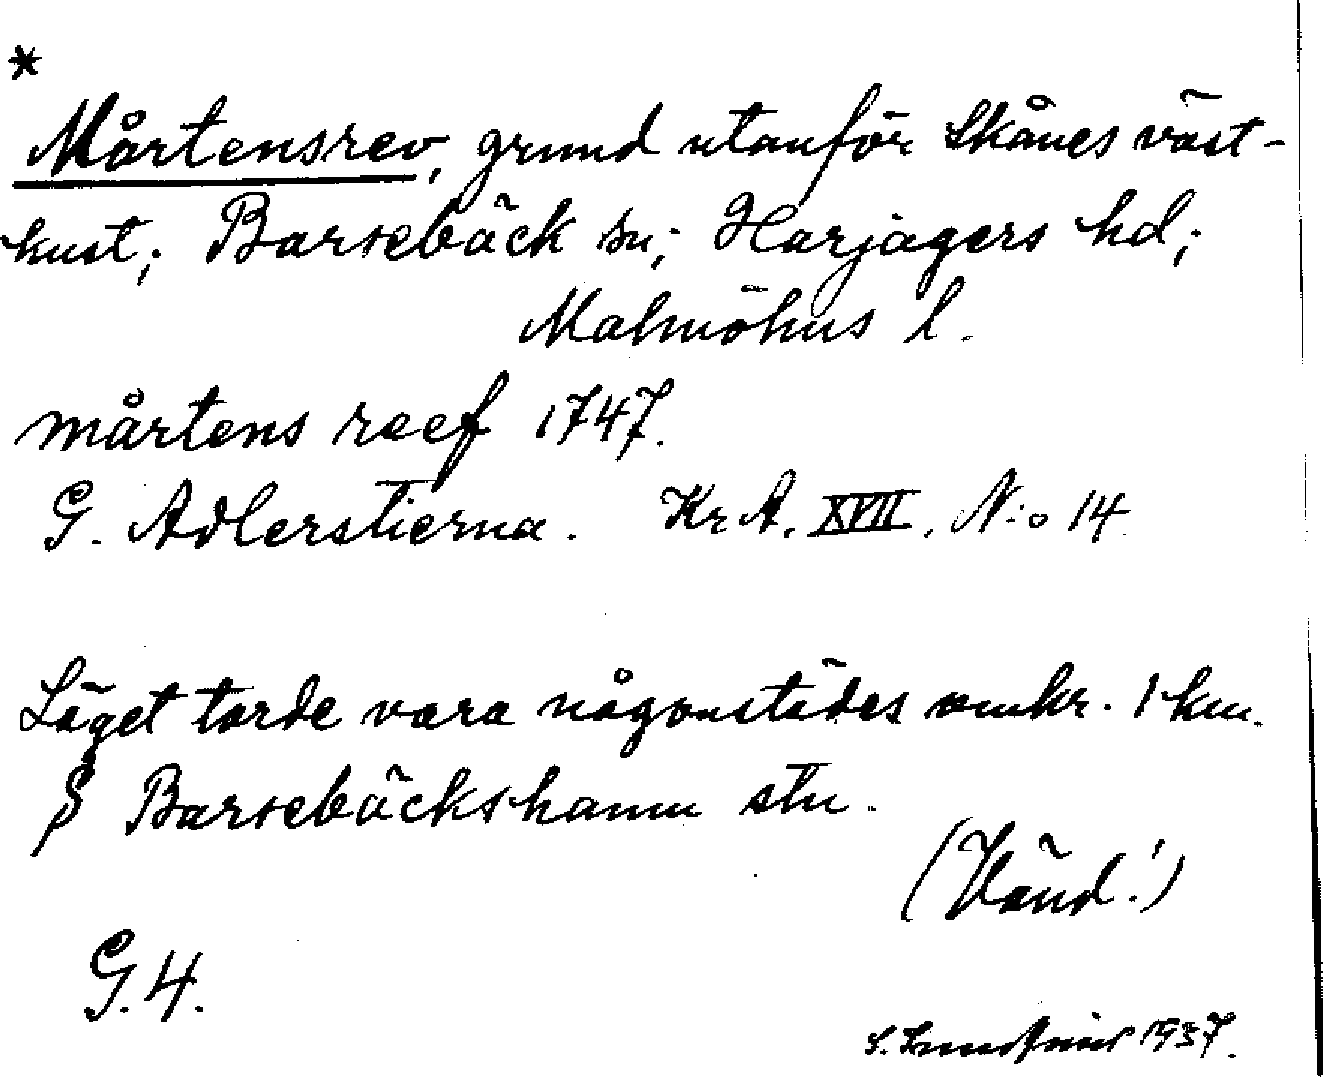 *
Mårtensrev, grund utanför Skånes väst-
kust; Barsebäck sn; Harjagers hd;
Malmöhus l.
mårtens reef 1747.
G. Adlerstierna. Kr A. XVII. N:o 14
Läget torde vara någonstädes omkr. 1 km.
S Barsebäckshamn stn.
(Vänd!)
G.4.
S. 1937.